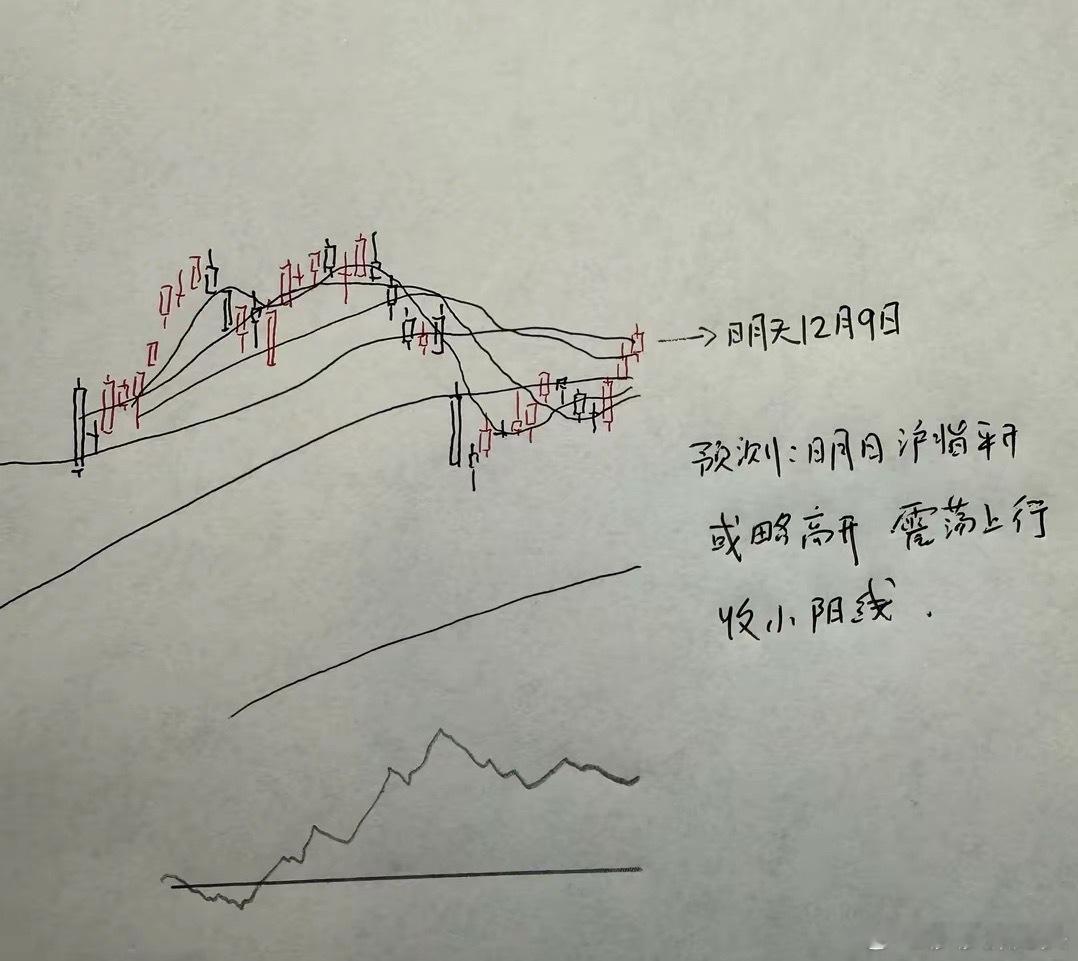 →明天12月9日
预测:明日沪指平开
或略高开 震荡上行
收小阳线.